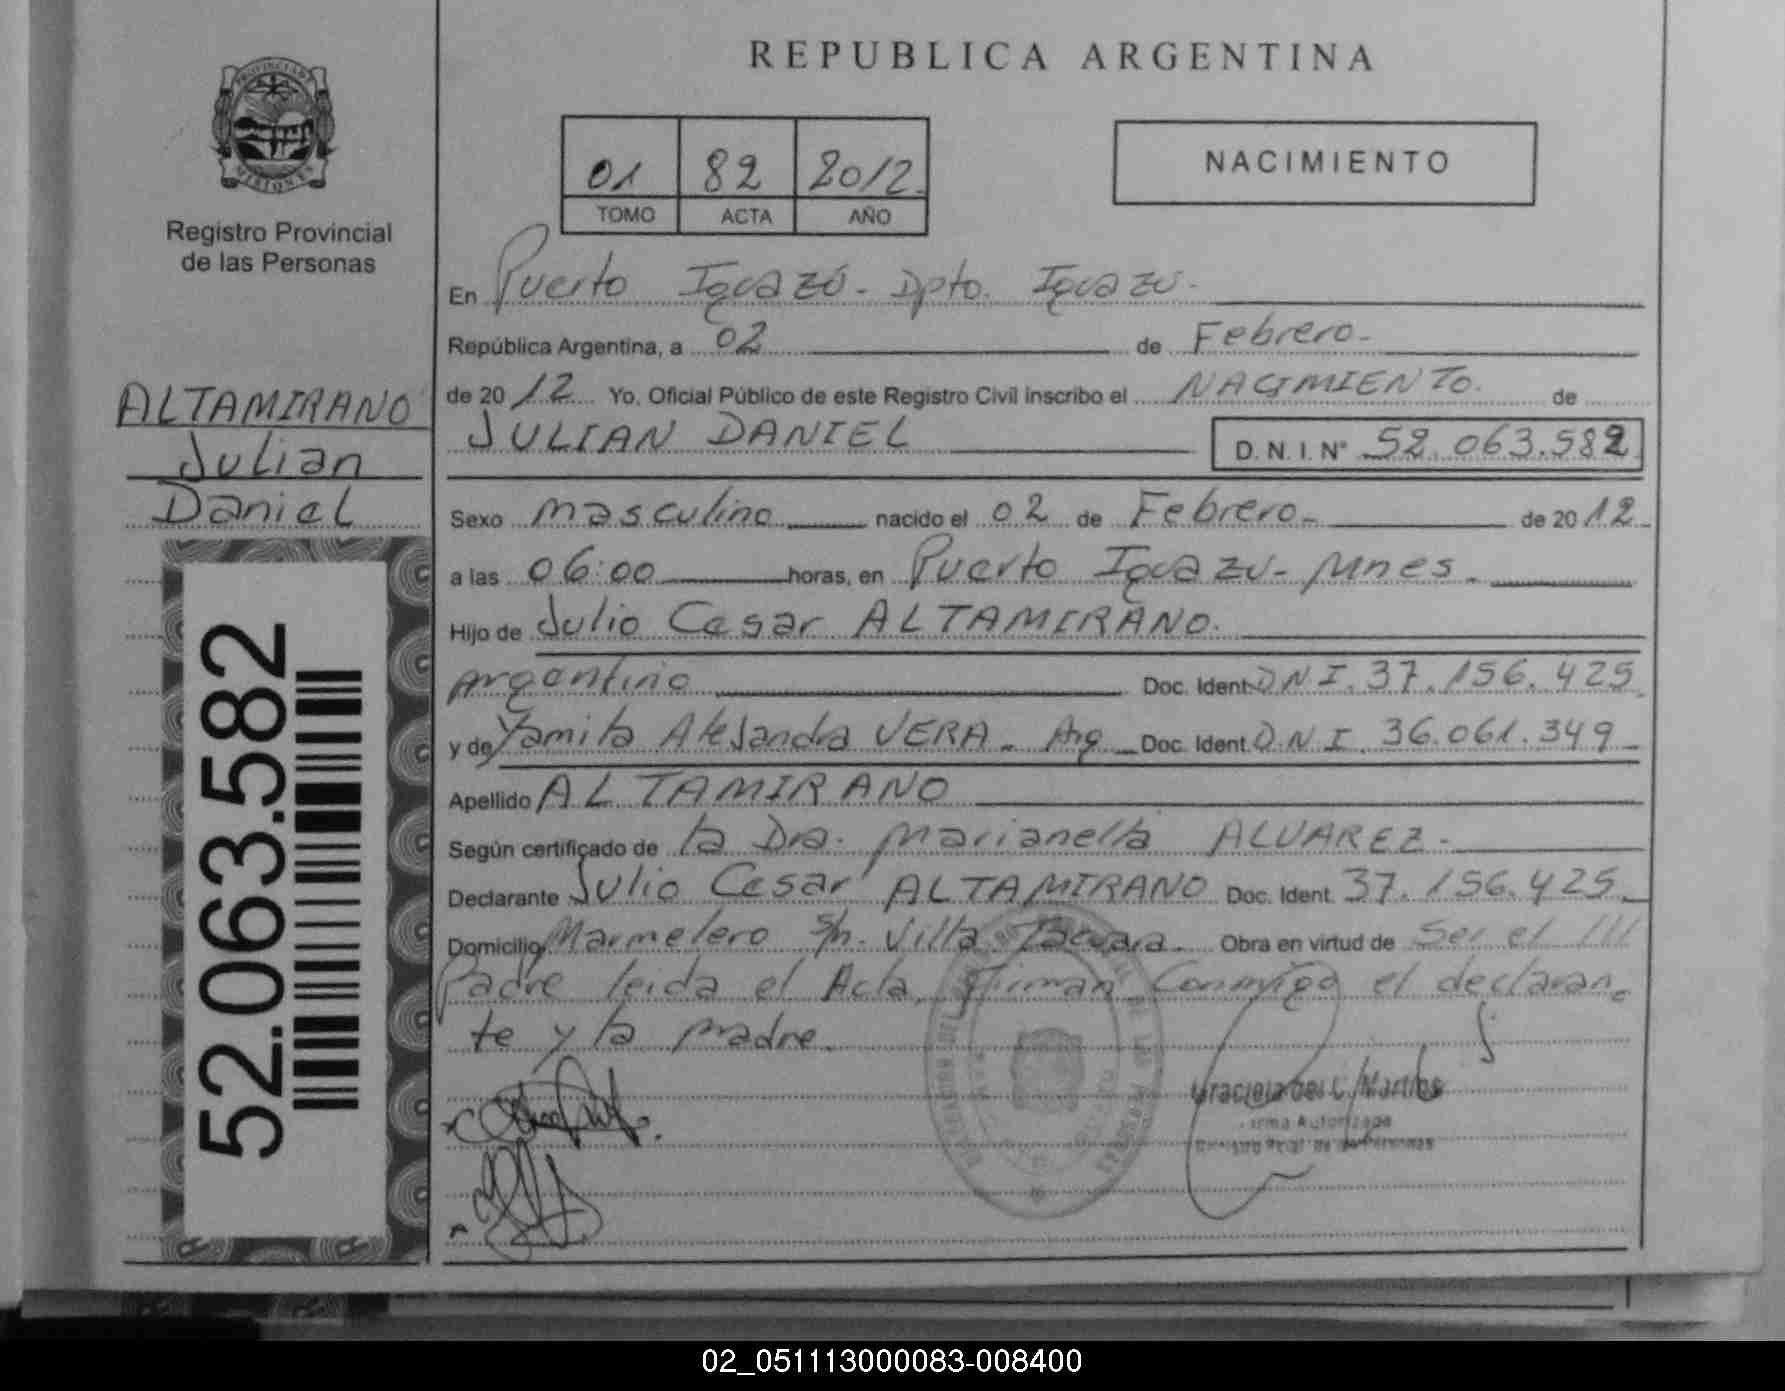 REPUBLICA ARGENTINA
PROVINCIA DE
MISIONES
Registro Provincial
de las Personas
01 82 2012
TOMO ACTA AÑO
NACIMIENTO
En Puerto Iguazú - Dpto. Iguazú -
República Argentina, a 02 de Febrero -
de 2012 Yo, Oficial Público de este Registro Civil inscribo el NACIMIENTO. de
JULIAN DANIEL D.N.I.N° 52.063.582
ALTAMIRANO
Julian
Daniel
52.063.582
Sexo masculino nacido el 02 de Febrero - de 2012
a las 06:00 horas, en Puerto Iguazú - Mnes.
Hijo de Julio Cesar ALTAMIRANO.
argentino Doc. Ident. DNI. 37.156.425
y de Yamila Alejandra VERA. Arg Doc. Ident. D.N.I. 36.061.349
Apellido ALTAMIRANO
Según certificado de la Dra. Marianella ALVAREZ.
Declarante Julio Cesar ALTAMIRANO Doc. Ident. 37.156.425
Domicilio Marmelero s/n. Villa Tacuara. Obra en virtud de Ser el ///
Padre leida el Acta, Firman Conmigo el declaran-
te y la madre.
Graciela del C. 
Firma Autorizada
de las Personas
02_051113000083-008400